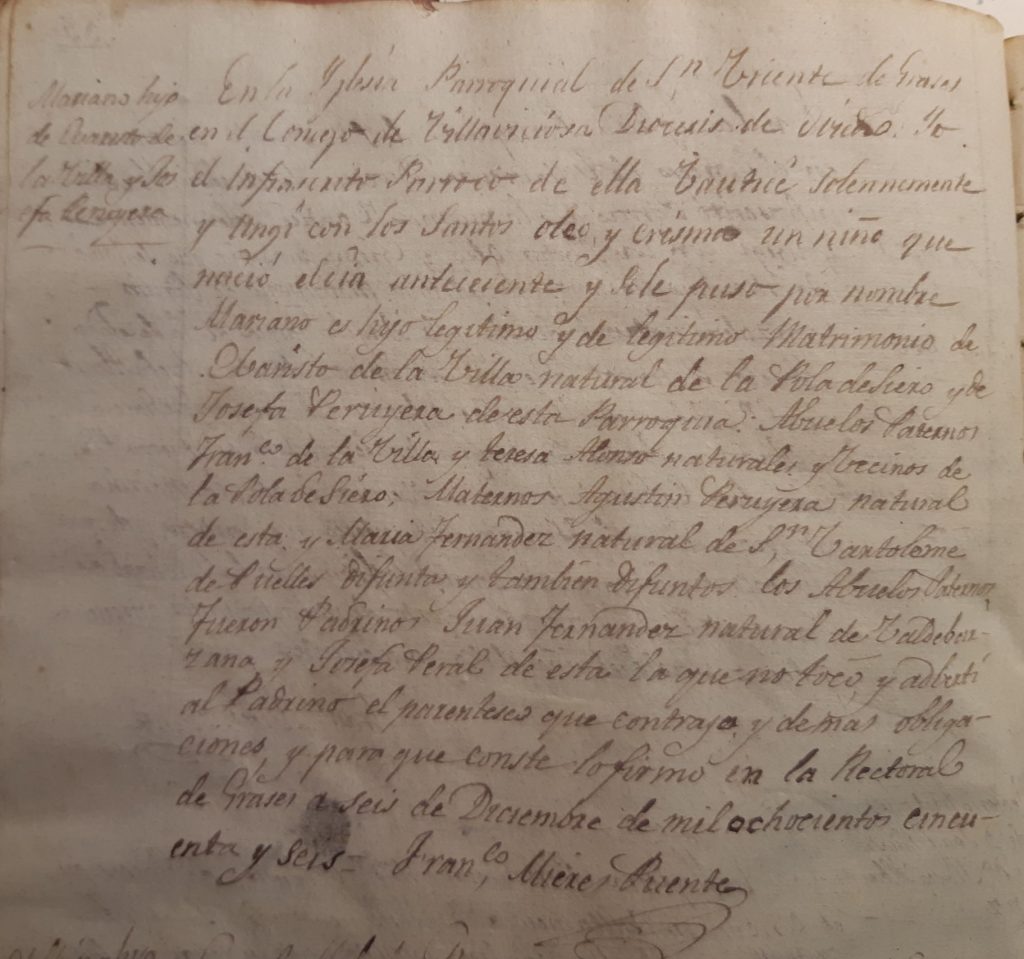 Mariano hijo
de Evaristo de
la Villa y Jos
efa Peruyera
En la Yglesia Parroquial de Sn. Vicente de Grases
en el Concejo de Villaviciosa Diocesis de Oviedo. Yo
el Infrascrito Parroco de ella Bautice solennemente
y Ungi con los Santos oleo, y crisma un niño que
nació el dia antecedente y se le puso por nombre
Mariano es hijo legitimo y de legitimo Matrimonio de
Evaristo de la Villa natural de la Pola de Siero y de
Josefa Peruyera de esta Parroquia: Abuelos Paternos
Franco. de la Villa y teresa Alonso naturales y Vecinos de
la Pola de Siero; Maternos Agustin Peruyera natural
de esta y Maria Fernandez natural de Sn. Bartolome
de Puelles difunta y tambien difuntos los Abuelos Paternos
Fueron Padrinos Juan Fernandez natural de Valdebar-
zana y Josefa Peral de esta la que no tocó, y adbertí
al Padrino el parentesco que contrajo y demas obliga-
ciones, y para que conste lo firmo en la Rectoral
de Grases a seis de Diciembre de mil ochocientos cincu-
enta y seis= Franco, Mieres Puente